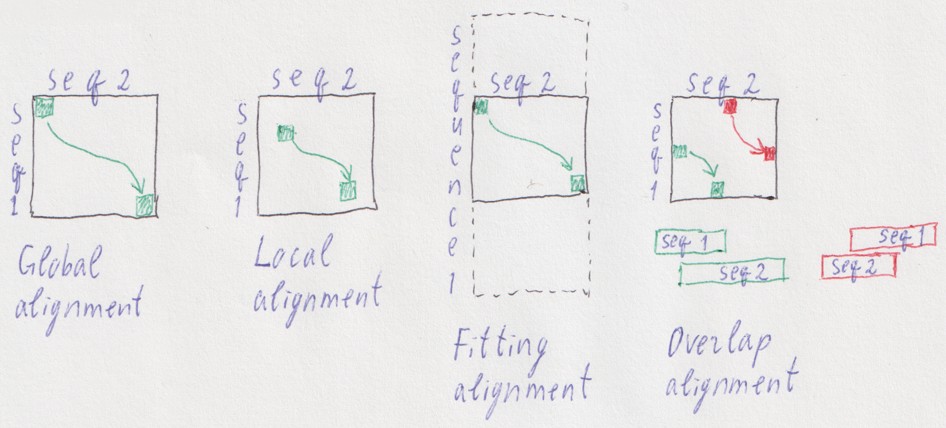 seq 2
seq 1
Global
alignment
seq 2
seq 1
Local
alignment
seq 2
sequence 1
Fitting
alignment
seq 2
seq 1
seq 1
seq 2
seq 1
seq 2
Overlap
alignment